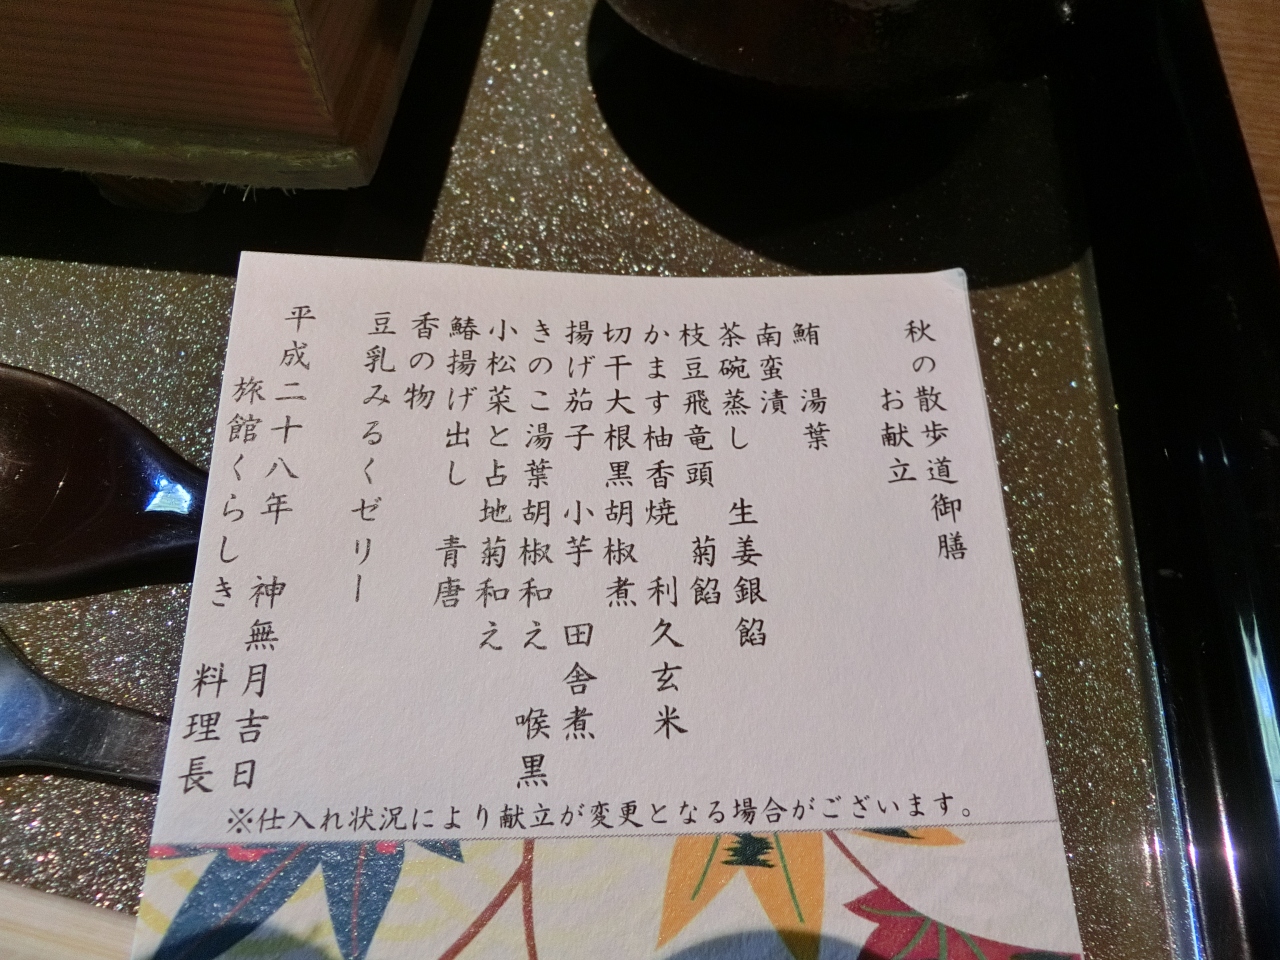 秋の散歩道御膳
お献立
鮪　湯葉
南蛮漬
茶碗蒸し　生姜銀餡
枝豆飛竜頭　菊餡
かます柚香焼　利久玄米
切干大根黒胡椒煮
揚げ茄子　小芋　田舎煮
きのこ湯葉胡椒和え　喉黒
小松菜と占地菊和え
鰆揚げ出し　青唐
香の物
豆乳みるくゼリー
平成二十八年　神無月吉日
旅館くらしき　料理長
※仕入れ状況により献立が変更となる場合がございます。